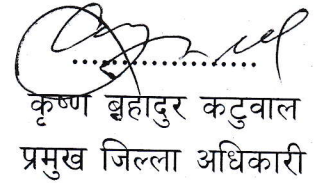 कृष्ण बृहादुर कटुवाल
प्रमुख जिल्ला अधिकारी